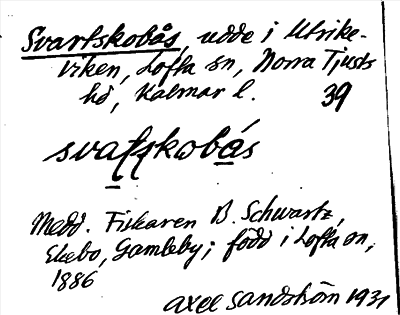 Svartskobås, udde i Utrike-
viken, Lofta sn, Norra Tjusts
hd, Kalmar l. 39
svaʃʃkobás
Medd. Fiskaren B. Schwartz,
Ekebo, Gamleby; född i Lofta sn,
1886
Axel Sandström 1931